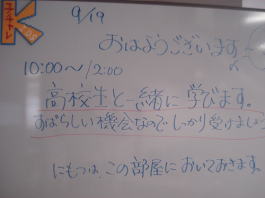 9/19
おはようございます
10:00～12:00
高校生と一緒に学びます。
すばらしい機会なので しっかり受けましょう
にもつは、この部屋に おいておきます。